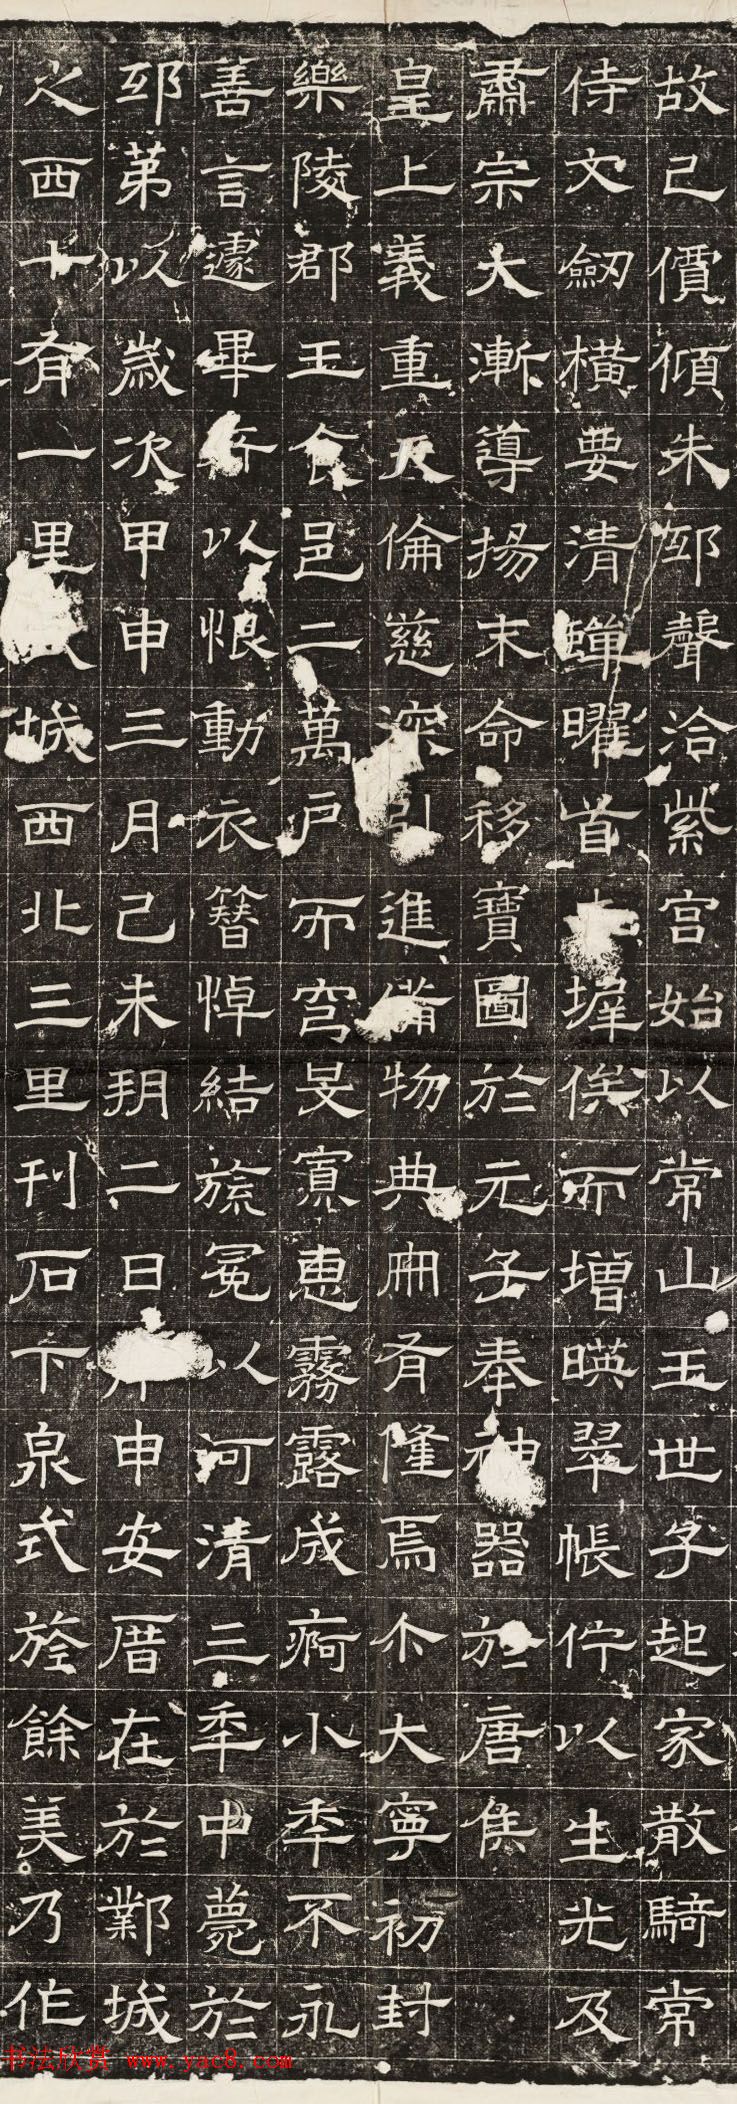 故己價傾朱邸聲洽紫宮始以常山王世子起家散騎常
侍文劒橫要清蟬曜首墀俟而增暎翠帳佇以生光及
肅宗大漸導揚末命移寶圖於元子奉神器於唐侯
皇上義重天倫慈深引進備物典冊有隆焉尒大寧初封
樂陵郡王食邑二萬戶而穹旻寡惠霧露成痾小年不永
善言遽畢以恨動衣簪悼結旒冕以河清三年中薨於
邸第以歲次甲申三月己未朔二日申安厝在於鄴城
之西十有一里城西北三里刊石下泉式旌餘美乃作
书法欣赏 www.yac8.com